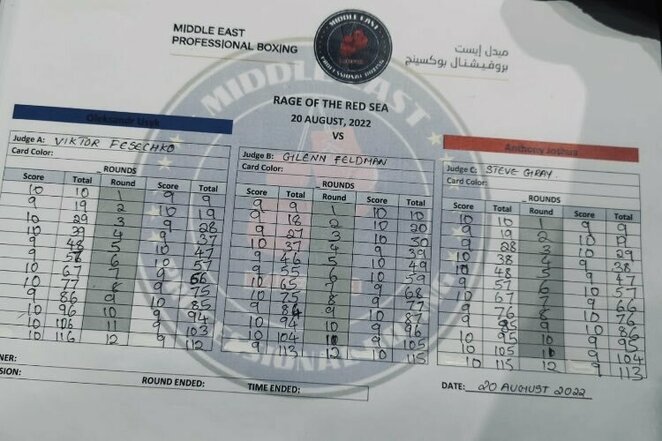 MIDDLE EAST
PROFESSIONAL BOXING
MIDDLE EAST
PROFESSIONAL BOXING
ميدل إيست
بروفيشنال بوكسينج
RAGE OF THE RED SEA
20 AUGUST, 2022
VS
Oleksandr Usyk
Judge A: VIKTOR FESECHKO
Card Color:
ROUNDS
Score Total Round Score Total
10 10 1 9 9
9 19 2 10 19
10 29 3 9 28
10 39 4 9 37
9 48 5 10 47
9 6 10 57
10 67 7 9 66
10 77 8 9
9 86 9 10 85
10 96 10 9 94
10 106 11 9 103
10 116 12 9 112
Judge B: GLENN FELDMAN
Card Color:
ROUNDS
Score Total Round Score Total
9 9 1 10 10
9 18 2 10 20
9 27 3 10 30
10 37 4 9 39
9 46 5 10 49
9 55 6 10 59
10 65 7 9 68
10 75 8 9 77
9 84 9 10 87
10 94 10 9 96
10 104 11 9 105
9 113 12 10 115
Anthony Joshua
Judge C: STEVE GRAY
Card Color:
ROUNDS
Score Total Round Score Total
10 10 1 9 9
9 19 2 10 19
9 28 3 10 29
10 38 4 9 38
10 48 5 9 47
9 57 6 10 57
10 67 7 9 66
9 76 8 10 76
9 9 10 86
10 95 10 9 95
10 105 11 9 104
10 115 12 9 113
NER:
SION:
ROUND ENDED:
TIME ENDED:
DATE: 20 AUGUST 2022
MIDDLE EAST
PROFESSIONAL BOXING